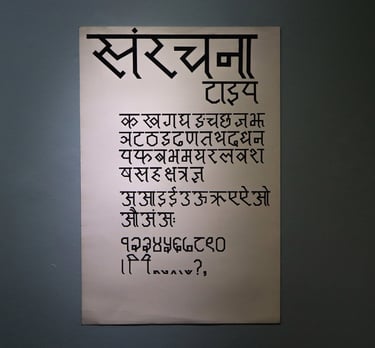 संरचना
टाइप
क ख ग घ ङ च छ ज झ
ञ ट ठ ड ढ ण त थ द ध न
प फ ब भ म य र ल व श
ष स ह क्ष त्र ज्ञ
अ आ इ ई उ ऊ ऋ ए ऐ ओ
औ अं अः
१२३४५६७८९०